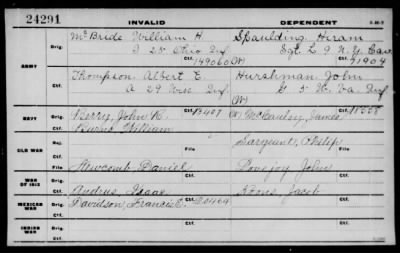 24291
INVALID
DEPENDENT
McBride William H.
Spaulding Hiram
Orig.
I 25 Ohio Inf
Sgt. L 9 N.Y. Cav
Ctf. 149060 (W)
Ctf. 71904
ARMY
Thompson Albert E.
Hurshman John
Orig.
A 29 Wisc Inf
G 5 W. Va. Inf
Ctf.
(W)
NAVY
Orig.
Berry, John
Ctf.
(W) McCauley, James
Ctf.
William
Ctf.
Sargent, Philip
OLD WAR
File
File
Newcomb, Daniel
Lovejoy John
WAR OF 1812
Orig.
Ctf.
Andrus, Isaac
Koons, Jacob
MEXICAN WAR
Orig.
Davidson, Francis E.
Ctf.
INDIAN WAR
Orig.
Ctf.